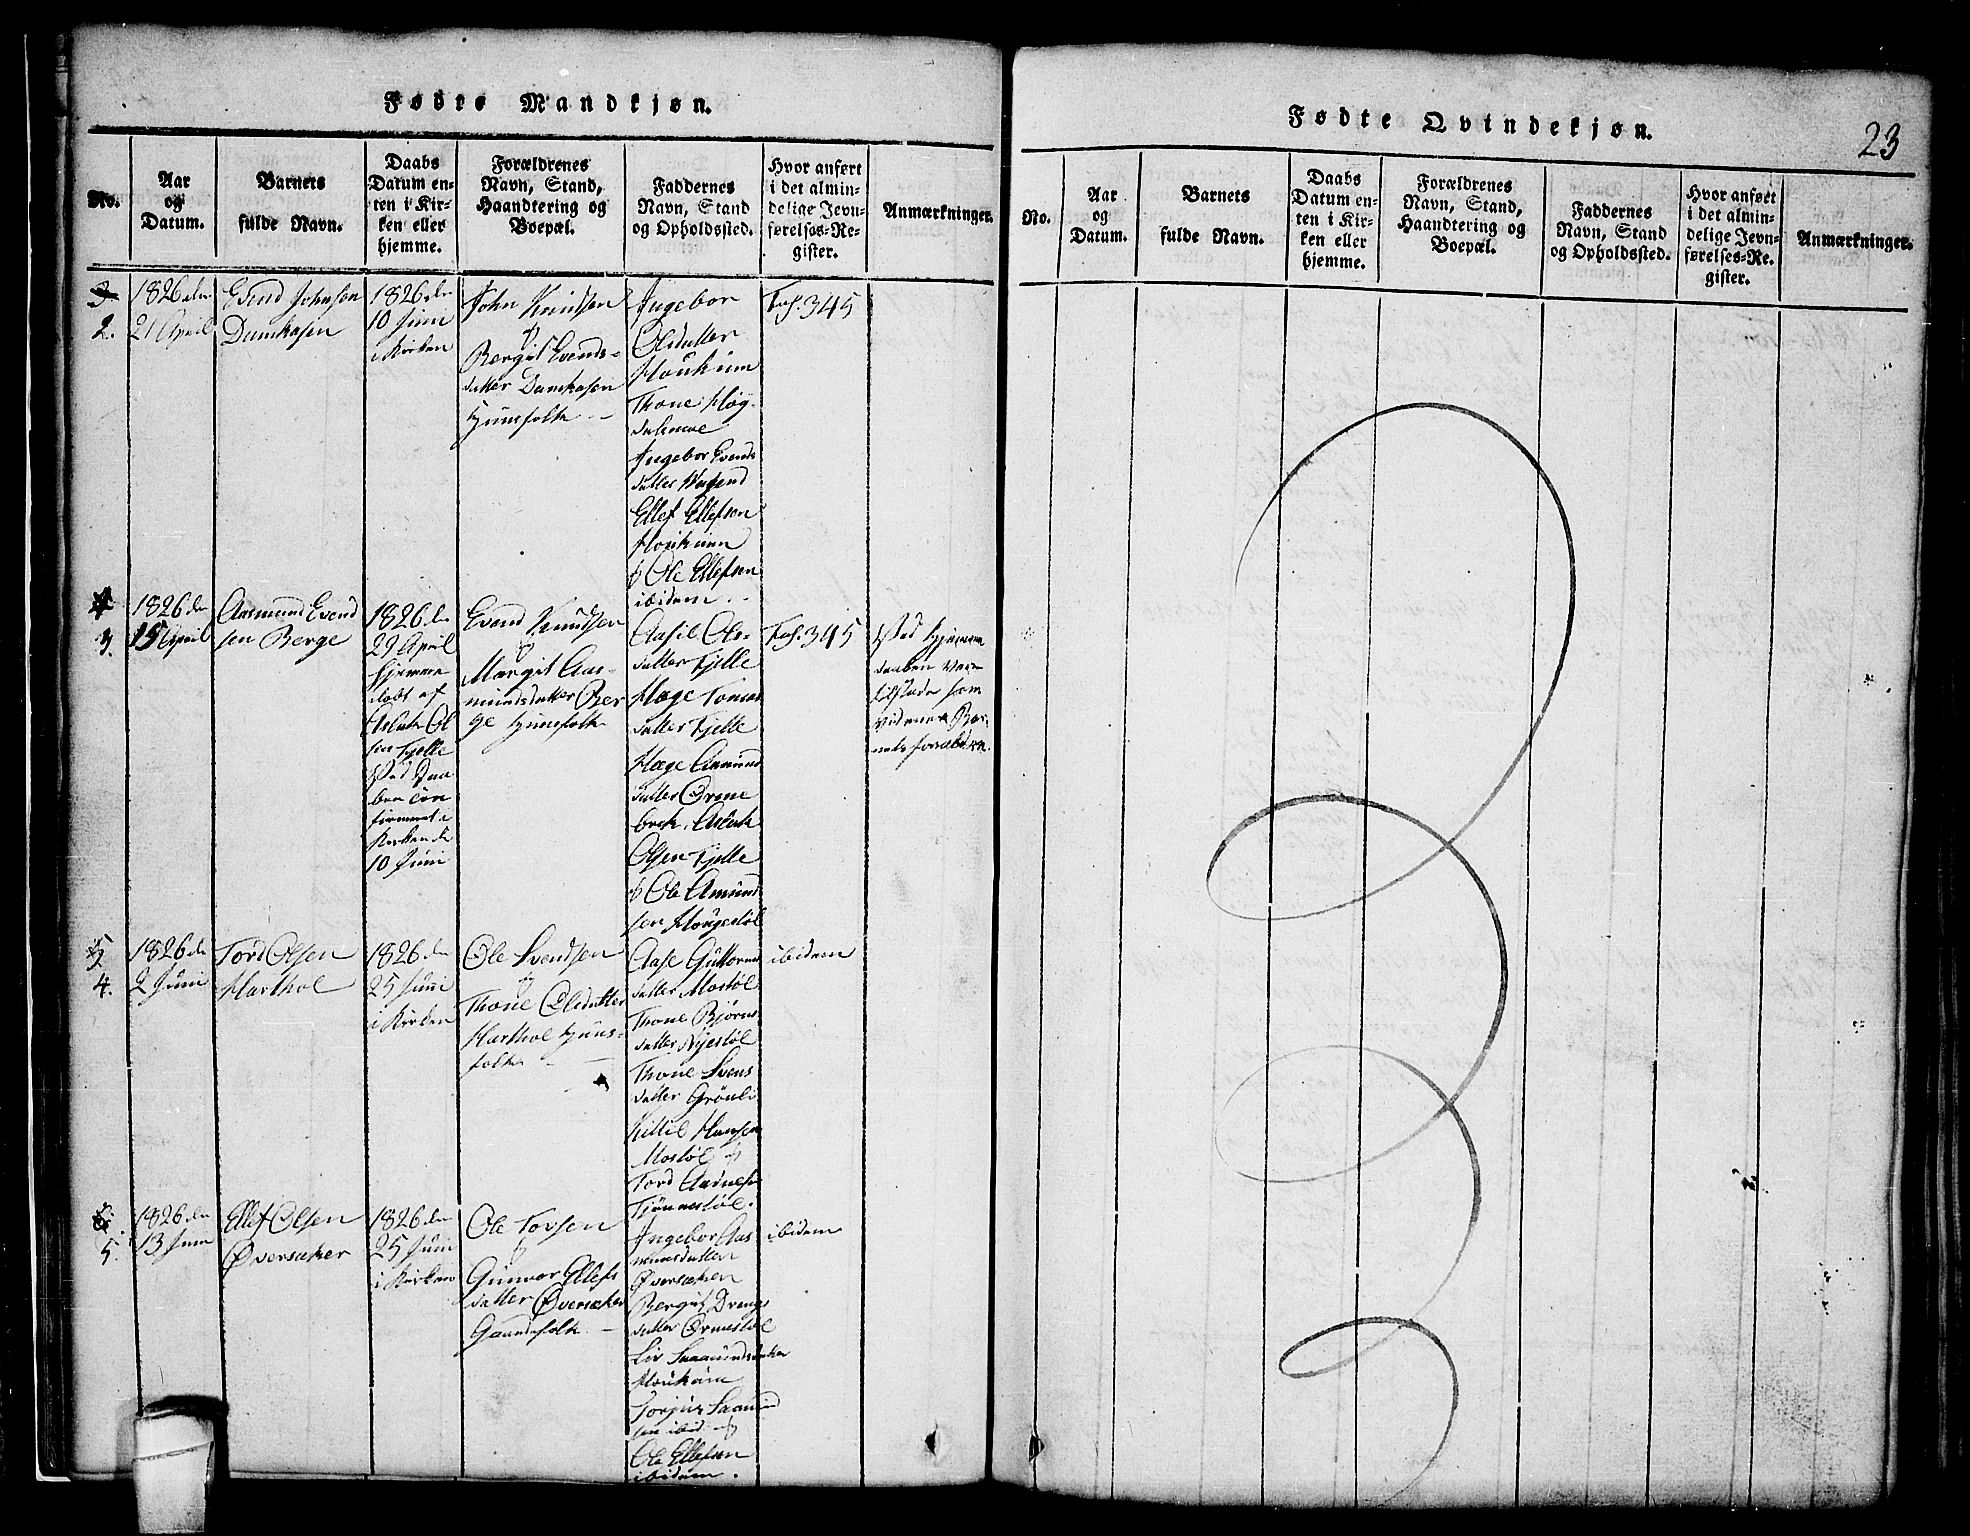 Fødte Mandkjøn.
No.
Aar
og
Datum.
Barnets
fulde Navn.
Daabs
Datum en-
ten i Kir-
ken eller
hjemme.
Forældrenes
Navn, Stand,
Haandtering og
Boepæl.
Faddernes
Navn, Stand
og Opholdssted.
Hvor anført
i det almin-
delige Jevn-
førelses-Re-
gister.
Anmærkninger.
3
2.
1826 den
21 April
Evind Johnsen
Damkasen
1826 den
10 Juni
i Kirken
John Knudsen
&
Bergit Evends-
datter Damkasen
Gjiftefolk
Ingebor
Olsdatter
Houkium
Thone Høg-
dalsmoe
Ingebor Evends
datter
Ellef Ellefsen
Houkium
& Ole Ellefsen
ibidem.
Fol. 345
4
3.
1826 den
15 April
Aasmund Evend
sen Berge
1826 den
29 April
hjemme
døbt af
Aslak Ol
sen Fjelle
Ved Daa-
ben con
firmeret i
Kirken de
10 Juni
Evend Knudsen
&
Margit Aas-
mundsdatter Ber
ge
Aasil Ols-
datter Fjelle
Hæge Tomas
datter Fjelle
Hæge Aamund
datter Ørne
brek. Aslak
Olsen Fjelle
& Ole Amund
sen Hougestøl
Fol. 345
Ved Hjemme
daaben vare
tilstæde som
vidner Bar-
nets forældre.
5
4.
1826 den
2 Juni
Tord Olsen
Harthol
1826 den
25 Juni
i Kirken
Ole Svendsen
&
Thone Olsdatter
Harthol
folk
Aase Guttorms
datter Mostøl
Thone Bjørns
datter Nystøl
Thone Svens
datter Grönli
Kittil Hansen
Mostøl &
Tord Aadnesen
Tjönnestøl.
ibidem
6
5.
1826 den
13 Juni
Ellef Olsen
Øversaker
1826 den
25 Juni
i Kirken
Ole Torsen
&
Gunvor Ellefs
datter Øversaker
Gaardefolk
Ingebor Aas
mundsdatter
Øversaker
Bergit Drengs
datter Ormestøl
Liv Saamundsdatter
Houkium
Torjus Saamund
sen ibid &
Ole Ellefsen
ibidem.
ibidem
Fødte Qvindekjøn.
23
No.
Aar
og
Datum.
Barnets
fulde Navn.
Daabs
Datum en-
ten i Kir-
ken eller
hjemme.
Forældrenes
Navn, Stand,
Haandtering og
Boepæl.
Faddernes
Navn, Stand
og Opholdssted.
Hvor anført
i det almin-
delige Jevn-
førelses-Re-
gister.
Anmærkninger.